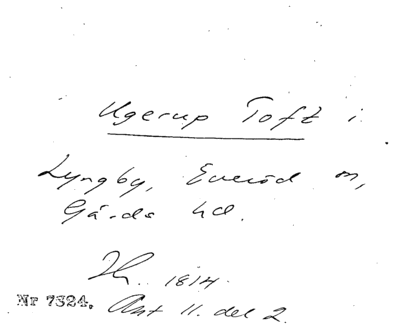 Ugerup Toft i
Lyngby, Everöd m,
Gärds hd.
Th. 1814.
Nr 7324. Ant 11. del 2.